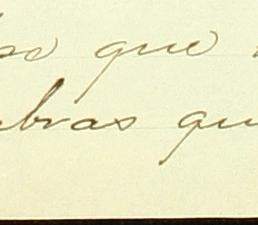 se que
bras qu